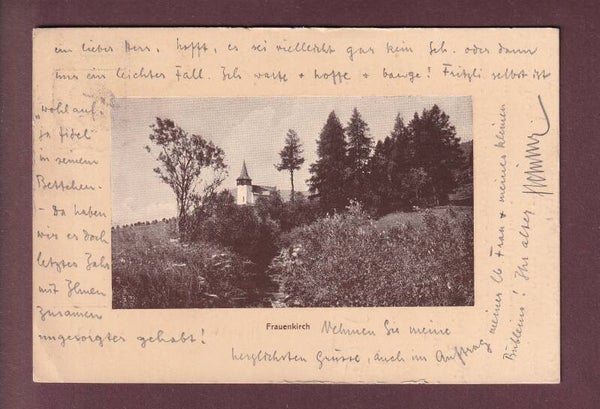 ein lieber Herr, hofft, es sei vielleicht gar kein Sch. oder dann
nur ein leichter Fall. Ich warte + hoffe + bange! Fritzli selbst ist
„wohlauf"
ja fidel
in seinem
Bettchen.
- Da haben
wir es doch
letztes Jahr
mit Ihnen
zusammen
ungesorgter gehabt!
Frauenkirch
Nehmen Sie meine
herzlichsten Grüsse, auch im Auftrag
meiner lb Frau + meines kleinen
Bübleins! Ihr alter